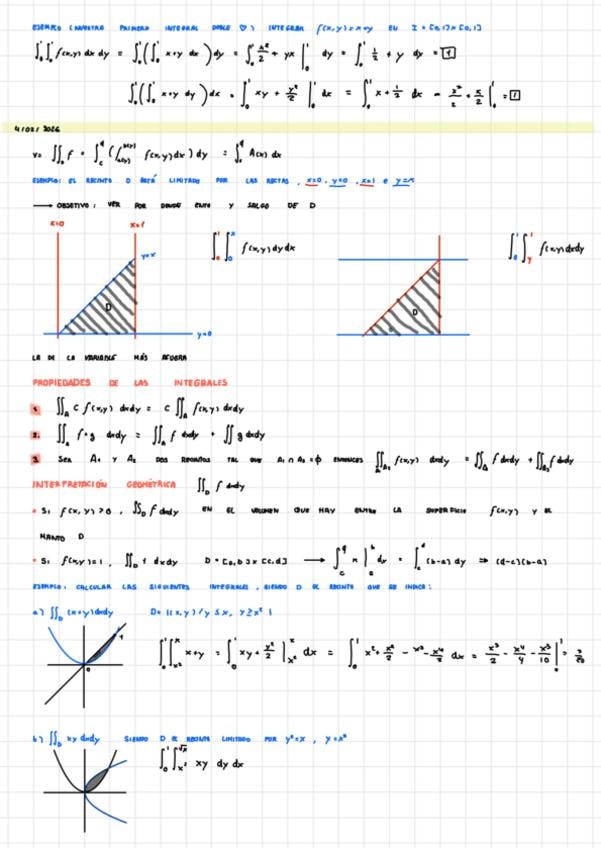 EJEMPLO (NUESTRA PRIMERA INTEGRAL DOBLE ♡) INTEGRAR f(x,y)=x+y EN I = [0,1]×[0,1]
∫₀¹∫₀¹ f(x,y) dx dy = ∫₀¹(∫₀¹ x+y dx) dy = ∫₀¹ x²/2 + yx |₀¹ dy = ∫₀¹ 1/2 + y dy = 1
∫₀¹(∫₀¹ x+y dy) dx = ∫₀¹ xy + y²/2 |₀¹ dx = ∫₀¹ x + 1/2 dx = x²/2 + x/2 |₀¹ = 1
4/02/2026
V= ∬_D f = ∫ (∫ f(x,y) dx) dy = ∫ A(x) dx
EJEMPLO: EL RECINTO D ESTÁ LIMITADO POR LAS RECTAS, x=0, y=0, x=1 e y=x
→ OBJETIVO: VER POR DONDE ENTO Y SALGO DE D
x=0 x=1
∫₀¹∫₀ˣ f(x,y) dy dx
∫₀¹∫ᵧ¹ f(x,y) dx dy
y=x
D
D
y=0
LA DE LA VARIABLE MÁS AFUERA
PROPIEDADES DE LAS INTEGRALES
1. ∬_A c f(x,y) dxdy = c ∬_A f(x,y) dxdy
2. ∬_A f+g dxdy = ∬_A f dxdy + ∬ g dxdy
3. SEA A₁ Y A₂ DOS RECINTOS TAL QUE A₁ ∩ A₂ = ∅ ENTONCES ∬ f(x,y) dxdy = ∬ f dxdy + ∬ f dxdy
INTERPRETACIÓN GEOMÉTRICA ∬_D f dxdy
• Si f(x,y) > 0, ∬_D f dxdy EN EL VOLUMEN QUE HAY ENTRE LA SUPERFICIE f(x,y) Y EL
MANTO D
• Si f(x,y)=1, ∬_D 1 dxdy D = [a,b]×[c,d] → ∫_c^d x |_a^b dx = ∫_c^d (b-a) dy ⇒ (d-c)(b-a)
EJEMPLO: CALCULAR LAS SIGUIENTES INTEGRALES, SIENDO D EL RECINTO QUE SE INDICA:
a) ∬_D (x+y) dxdy D = {(x,y) / y ≤ x, y ≥ x²}
∫₀¹∫_{x²}^x x+y = ∫₀¹ xy + y²/2 |_{x²}^x dx = ∫₀¹ x² + x²/2 - x³ - x⁴/2 dx = x³/2 - x⁴/4 - x⁵/10 |₀¹ = 3/20
b) ∬_D xy dxdy SIENDO D EL RECINTO LIMITADO POR y²=x, y=x²
∫₀¹∫_{x²}^{√x} xy dy dx